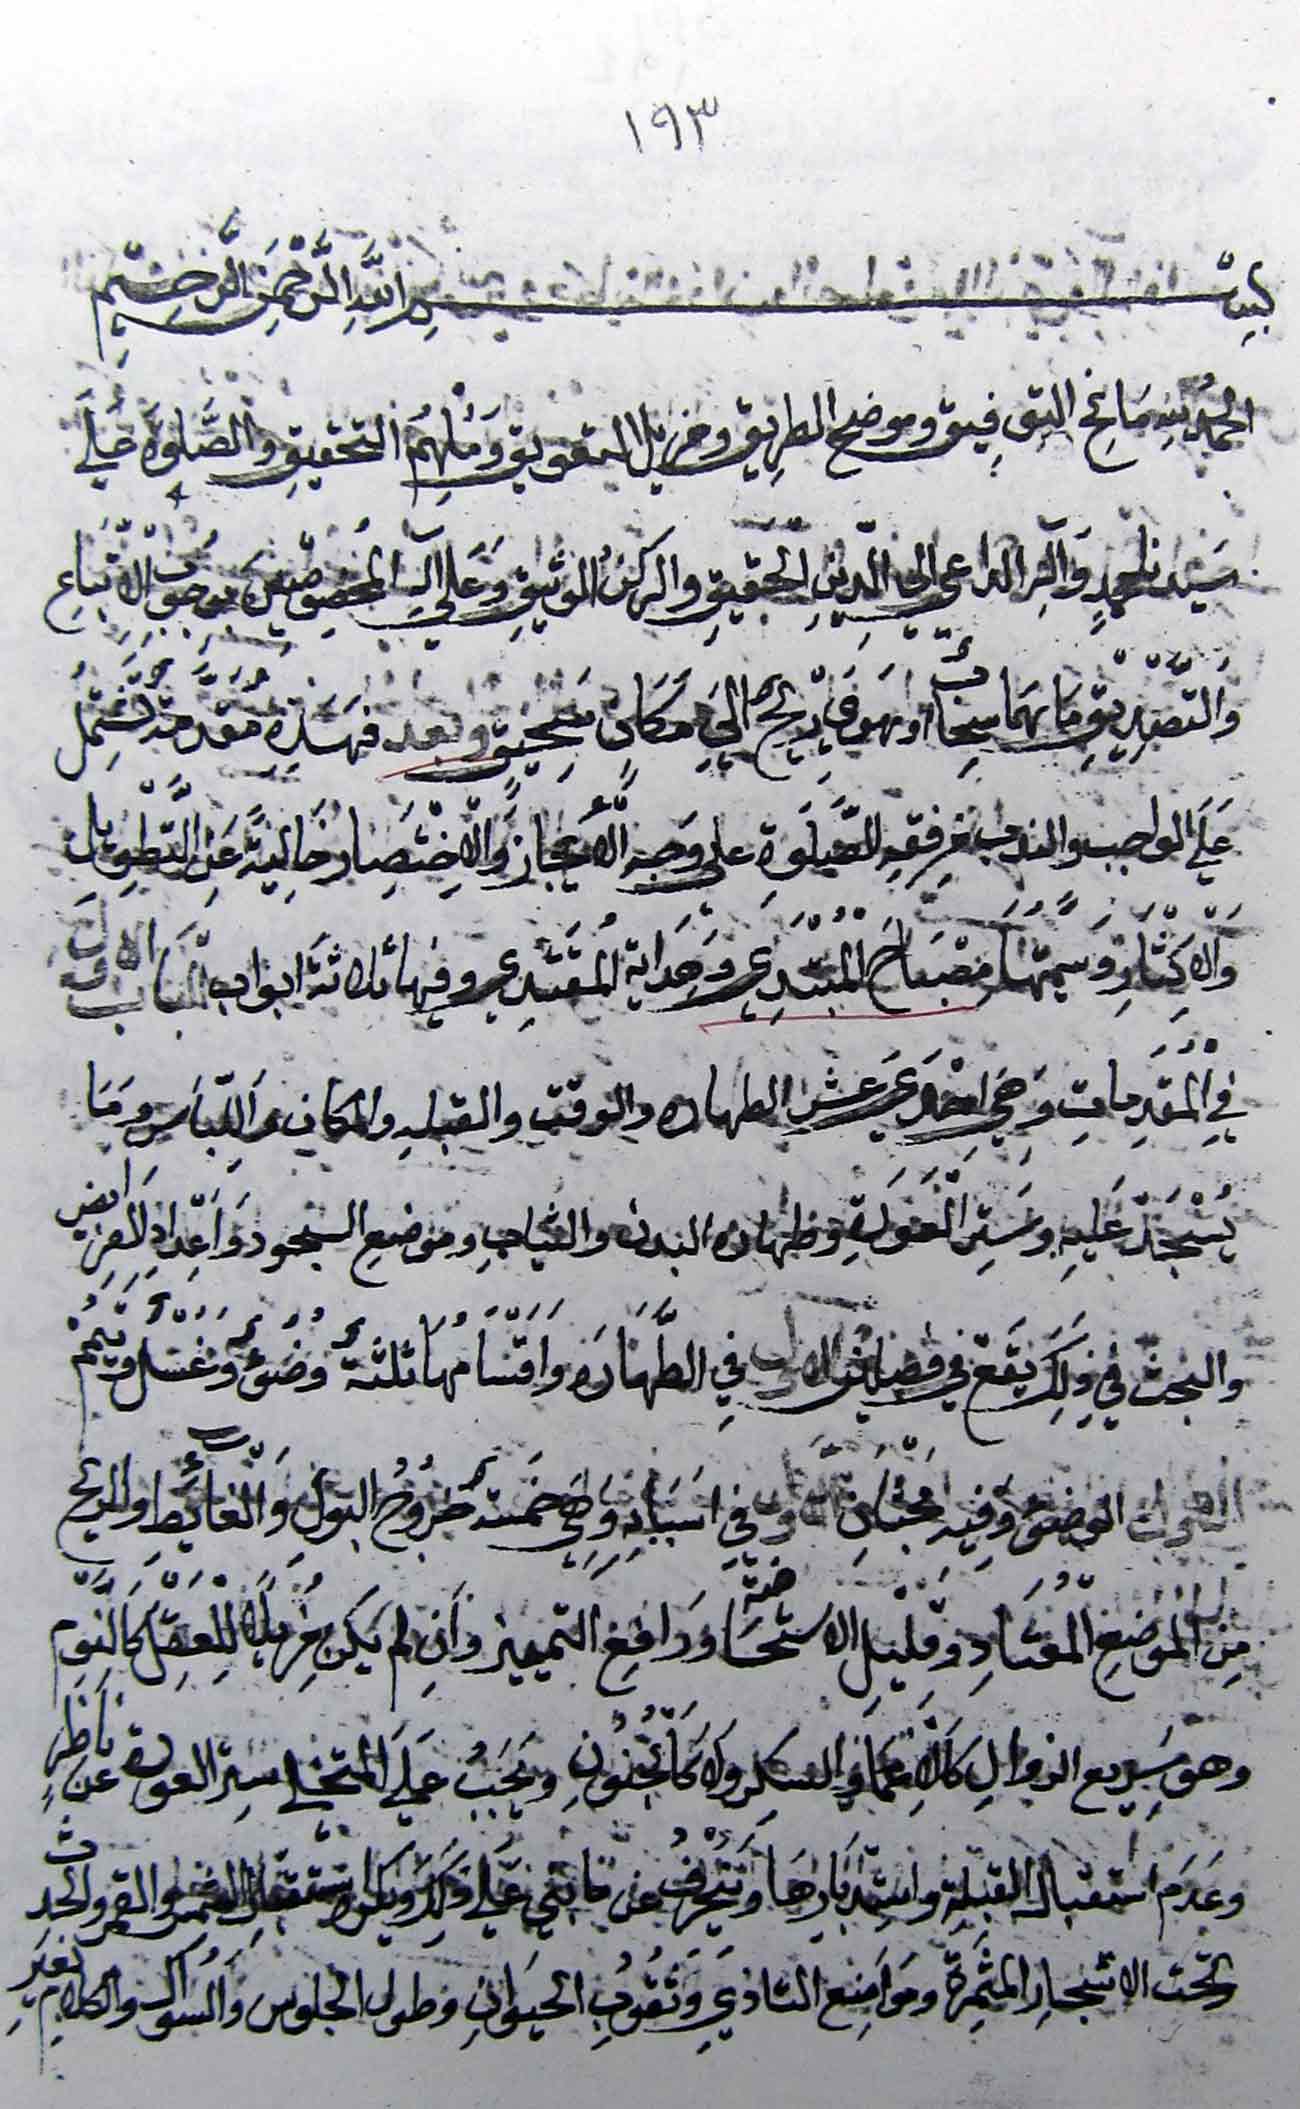 ١٩٣
بسم الله الرحمن الرحيم
الحمد لله مانح التوفيق وموضح الطريق ومزيل التعويق وملهم التحقيق والصلوة على
سيدنا محمد الداعي الى الدين الحقيق والركن الوثيق وعلى آله المخصوصين بوجوب الاتباع
والتصديق ما هما سحاب او تهوى ريح الى مكان سحيق وبعد فهذه مقدمة تشتمل
على الواجب والندب من فقه الصلوة على وجه الايجاز والاختصار خالية عن التطويل
والاكثار وسميتها مصباح المبتدي وهداية المقتدي وفيها ثلاثة ابواب الباب الاول
في المقدمات وهي احدى عشر الطهاره والوقت والقبله والمكان واللباس وما
يسجد عليه وستر العورة وطهاره البدن والثياب وموضع السجود واعداد الفرايض
والبحث في ذلك يقع في فصلين الاول في الطهاره واقسامها ثلثة وضوء وغسل وتيمم
الوضوء وفيه بحثان الاول في اسبابه وهي خمسة خروج البول والغايط والريح
من الموضع المعتاد وقليل الاستحاضة ورافع التميز وان لم يكن مزيلا للعقل كالنوم
وهو سريع الزوال كالاغماء والسكر ولا كالجنون ويجب على المتخلي ستر العورة عن ناظر
وعدم استقبال القبلة واستدبارها وينحرف عن ما بني على ذلك ويكره استقبال الشمس والقمر والحدث
تحت الاشجار المثمرة ومواضع التاذي وثقوب الحيوان وطول الجلوس والسواك والكلام بغير